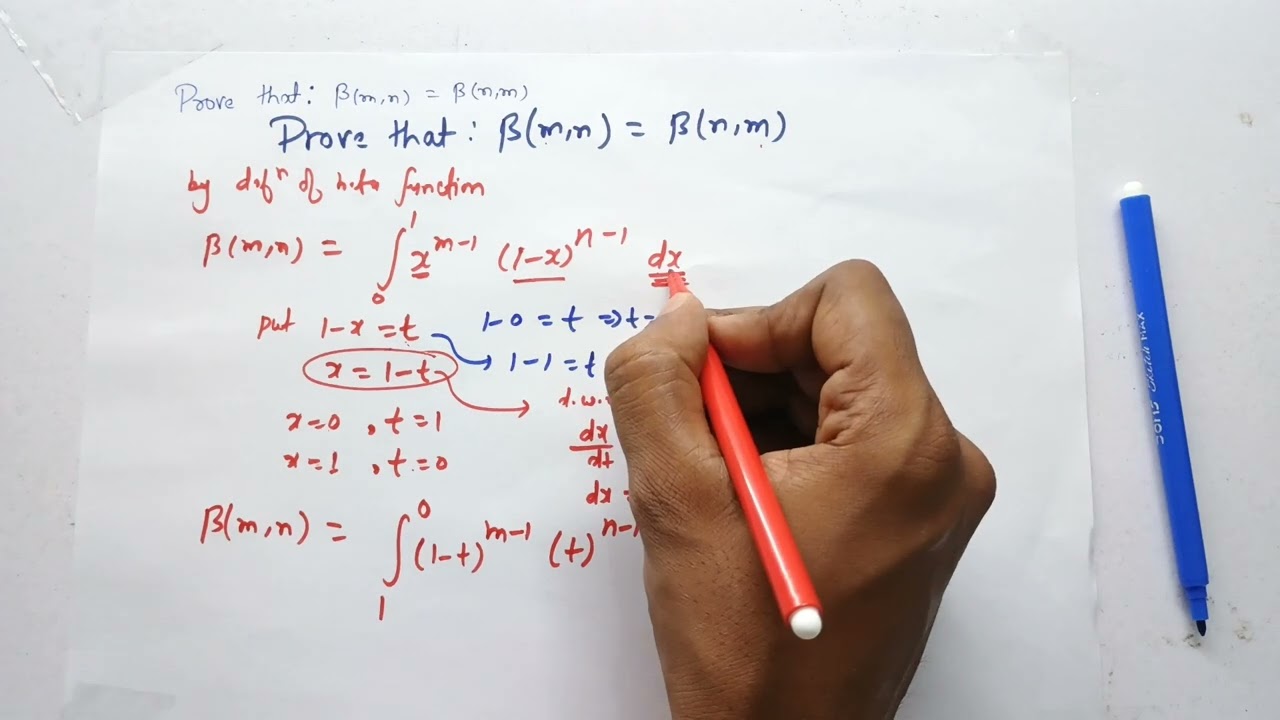 Prove that: β(m,n) = β(n,m)
Prove that: β(m,n) = β(n,m)
by defⁿ of beta function
β(m,n) = ∫₀¹ x^{m-1} (1-x)^{n-1} dx
put 1-x = t
1-0 = t ⇒ t =
x = 1-t
1-1 = t
x=0, t=1
d.w.
x=1, t=0
dx/dt
dx =
β(m,n) = ∫₁⁰ (1-t)^{m-1} (t)^{n-1}